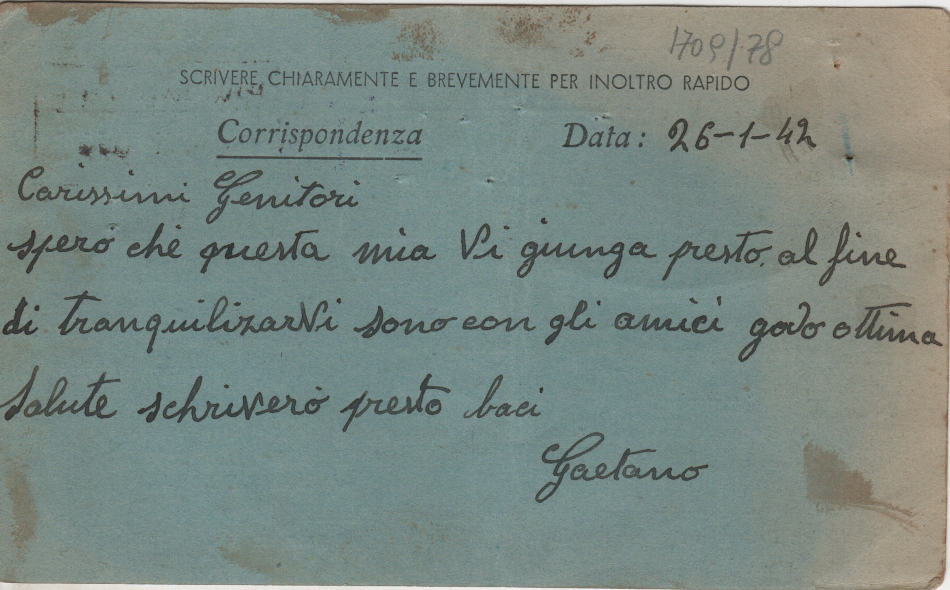 1709/78
SCRIVERE CHIARAMENTE E BREVEMENTE PER INOLTRO RAPIDO
Corrispondenza Data: 26-1-42
Carissimi Genitori
spero che questa mia Vi giunga presto. al fine
di tranquilizarVi sono con gli amici godo ottima
Salute schriverò presto baci
Gaetano